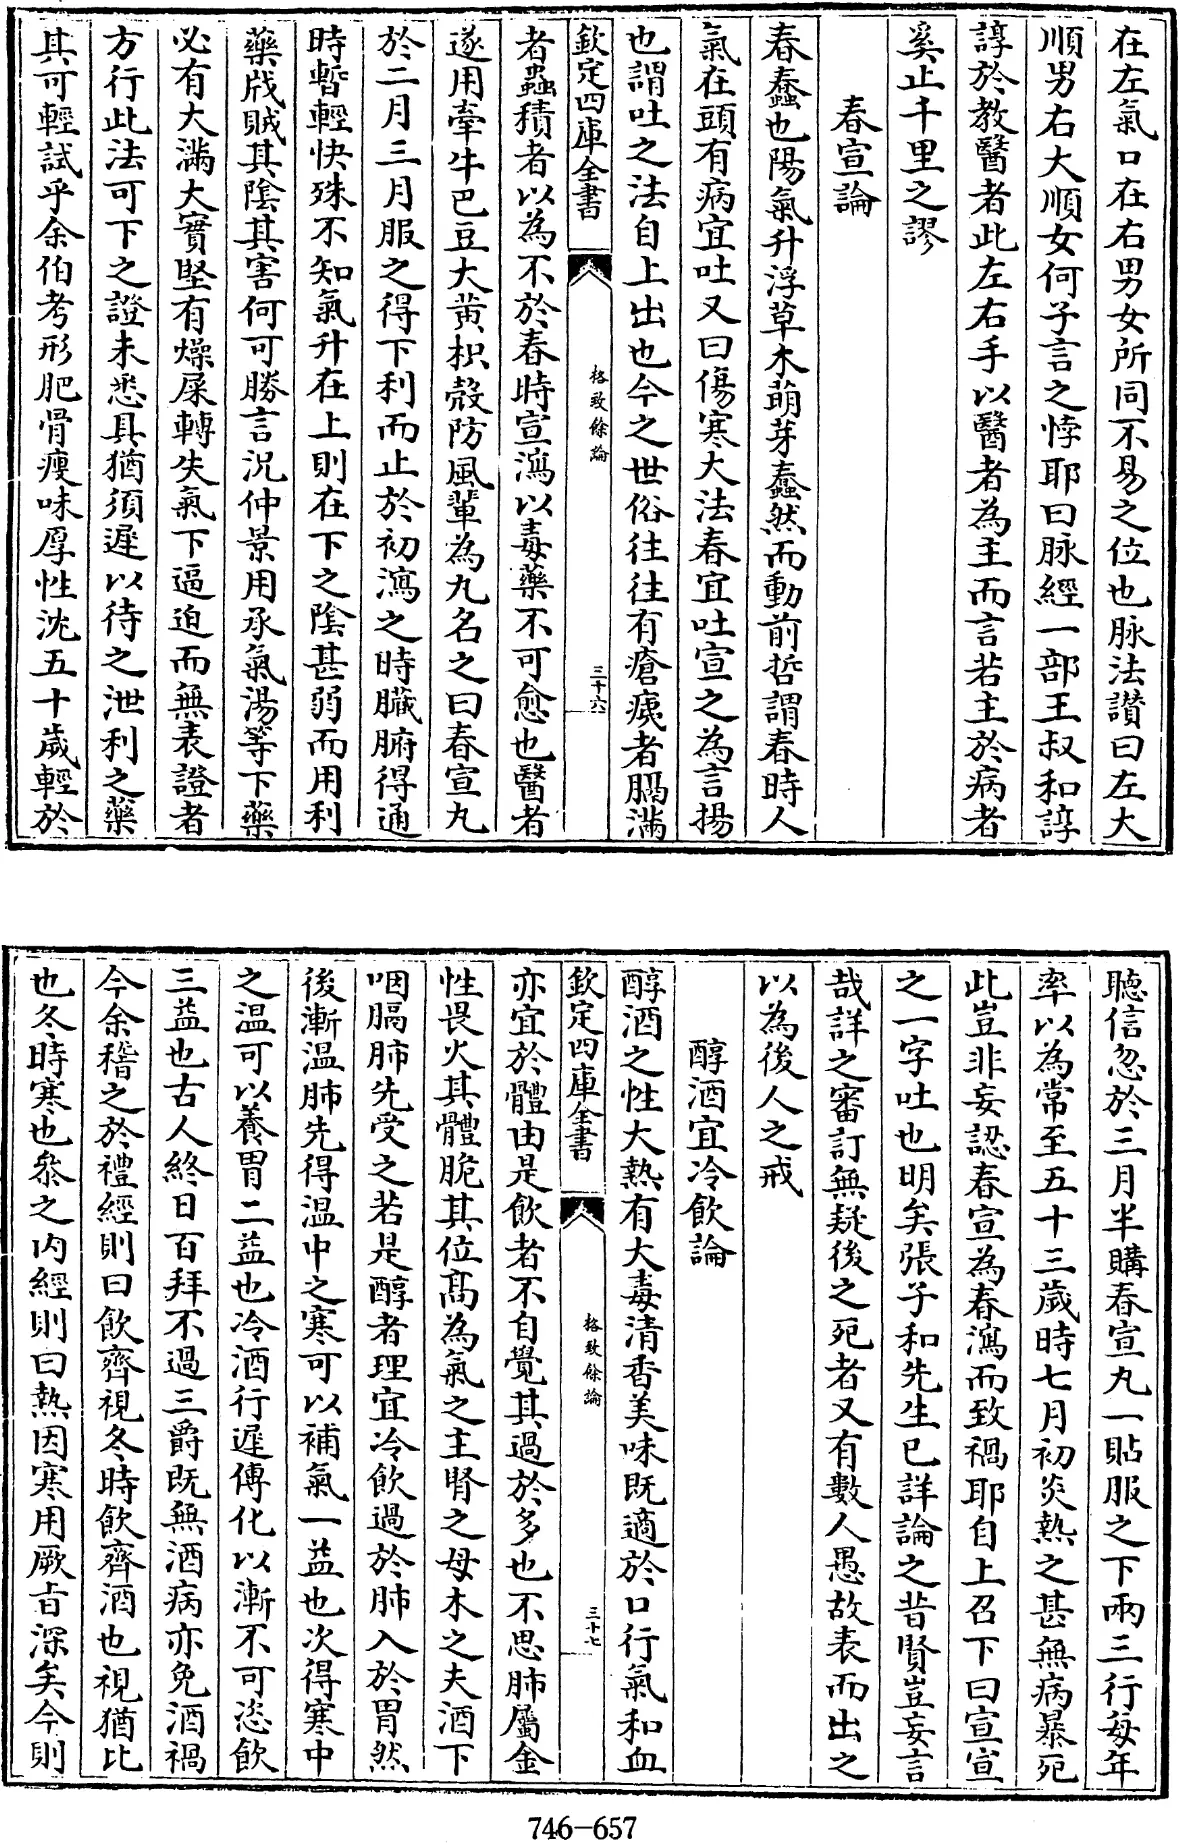 在左氣口在右男女所同不易之位也脉法讚曰左大
順男右大順女何子言之悖耶曰脉經一部王叔和諄
諄於教醫者此左右手以醫者為主而言若主於病者
奚止千里之謬
春宣論
春蠢也陽氣升浮草木萌芽蠢然而動前哲謂春時人
氣在頭有病宜吐又曰傷寒大法春宜吐宣之為言揚
也謂吐之法自上出也今之世俗往往有瘡痍者膈滿
欽定四庫全書
格致餘論
三十六
者蟲積者以為不於春時宣瀉以毒藥不可愈也醫者
遂用牽牛巴豆大黄枳殻防風輩為丸名之曰春宣丸
於二月三月服之得下利而止於初瀉之時臓腑得通
時暫輕快殊不知氣升在上則在下之隂甚弱而用利
藥戕賊其隂其害何可勝言況仲景用承氣湯等下藥
必有大滿大實堅有燥屎轉失氣下逼迫而無表證者
方行此法可下之證未悉具猶須遲以待之泄利之藥
其可輕試乎余伯考形肥骨瘦味厚性沈五十歲輕於
聽信忽於三月半購春宣丸一貼服之下兩三行每年
率以為常至五十三歲時七月初炎熱之甚無病暴死
此豈非妄認春宣為春瀉而致禍耶自上召下曰宣宣
之一字吐也明矣張子和先生已詳論之昔賢豈妄言
哉詳之審訂無疑後之死者又有數人愚故表而出之
以為後人之戒
醇酒宜冷飲論
醇酒之性大熱有大毒清香美味既適於口行氣和血
欽定四庫全書
格致餘論
三十七
亦宜於體由是飲者不自覺其過於多也不思肺屬金
性畏火其體脆其位髙為氣之主腎之母木之夫酒下
咽膈肺先受之若是醇者理宜冷飲過於肺入於胃然
後漸温肺先得温中之寒可以補氣一益也次得寒中
之温可以養胃二益也冷酒行遲傳化以漸不可恣飲
三益也古人終日百拜不過三爵既無酒病亦免酒禍
今余稽之於禮經則曰飲齊視冬時飲齊酒也視猶比
也冬時寒也叅之内經則曰熱因寒用厥㫖深矣今則
746-657